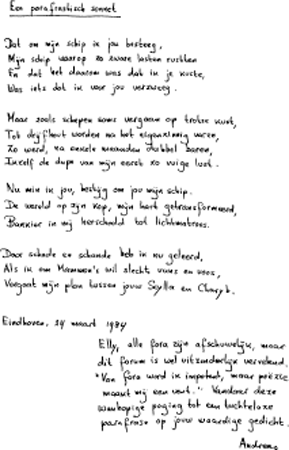 Een parafrastisch sonnet
Dat om mijn schip in jou besteeg,
Mijn schip waarop zo zware lasten rustten
En dat het daarom was dat ik je kuste,
Was iets dat ik voor jou verzweeg.
Maar zoals schepen soms vergaan op trotse kust,
Tot drijfhout worden na het eigenzinnig varen,
Zo werd, na enkele maanden dubbel baren,
Ikzelf de dupe van mijn eerst zo vurige lust.
Nu min ik jou, bestijg om jou mijn schip.
De wereld op zijn kop, mijn hart getransformeerd,
Bankier in mij herschoold tot lichtmatroos.
Door schade en schande heb ik nu geleerd,
Als ik om Mammon's wil slecht, voos en voos,
Vergaat mijn plan tussen jouw Skylla en Charyb.
Eindhoven, 24 maart 1984
Elly, alle fora zijn afschuwelijk, maar
dit forum is wel uitzonderlijk vervelend.
"Van fora word ik impotent, maar poëzie
maakt mij een vent." Vandaar deze
wanhopige poging tot een luchteloze
parafrase op jouw waardige gedicht.
Andreas